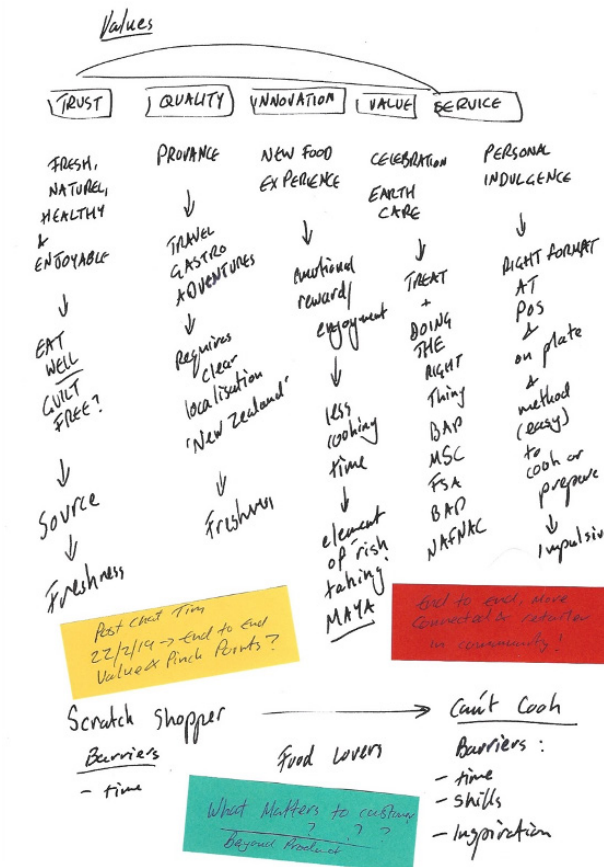 Values
TRUST
QUALITY
INNOVATION
VALUE
SERVICE
FRESH,
NATUREL,
HEALTHY
&
ENJOYABLE
EAT
WELL
GUILT
FREE?
Source
Freshness
PROVANCE
TRAVEL
GASTRO
ADVENTURES
Requires
clear
localisation
'New Zealand'
Freshness
NEW FOOD
EXPERIENCE
emotional
reward/
enjoyment
less
cooking
time
element
of risk
taking
MAYA
CELEBRATION
EARTH
CARE
TREAT
+
DOING
THE
RIGHT
Thing
BAP
MSC
FSA
BAP
NAFNAC
PERSONAL
INDULGENCE
RIGHT FORMAT
AT
POS
&
on plate
&
method
(easy)
to
cook or
prepare
Impulsiv
Post Chat Tim
22/2/19 → End to End
Value & Pinch Points?
End to end, more
Connected & retailer
in community!
Scratch Shopper
Can't Cook
Barriers
- time
Food Lovers
Barriers:
- time
- Skills
- Inspiration
What Matters to customer
? ? ?
Beyond Product